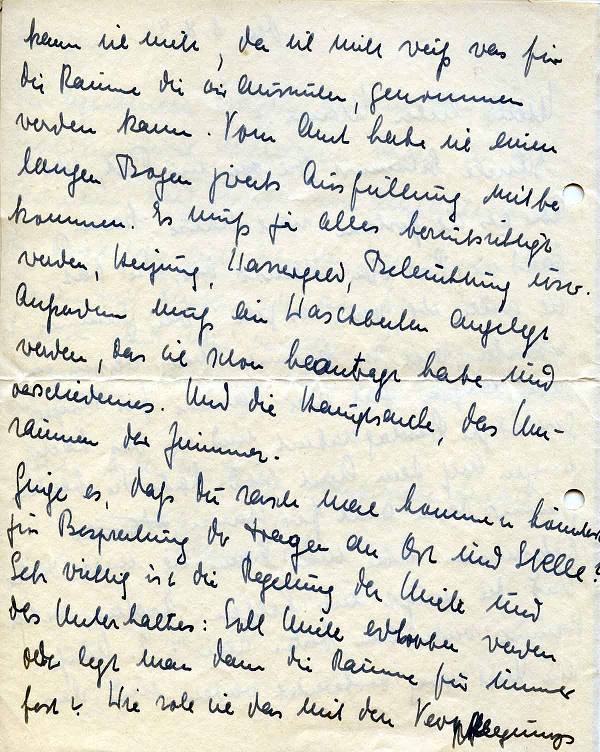 kann ich nicht, da ich nicht weiß was für
die Räume die wir ausnutzen, genommen
werden kann. Vom Amt habe ich einen
langen Bogen zwecks Ausfüllung mitbe
kommen. Es muß ja alles berücksichtigt
werden, Heizung, Wassergeld, Beleuchtung usw.
Außerdem muß ein Waschbecken angelegt
werden, das ich schon beantragt habe und
verschiedenes. Und die Hauptsache, das Um-
räumen der Zimmer.
Ginge es, daß Du rasch mal kommen könntest
für Besprechung der Fragen an Ort und Stelle?
Sehr wichtig ist die Regelung der Miete und
des Unterhaltes: Soll Miete erhoben werden
oder legt man dann die Räume für immer
fest? Wie soll ich das mit den Verpflegungs